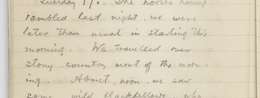 Tuesday 17. The horses having
rambled last night we were
later than usual in starting this
morning. We travelled over
stony country most of the morn-
ing. About noon we saw
some wild blackfellows who